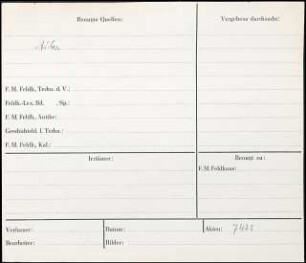 Benutzte Quellen:
Vergebens durchsucht:
F. M. Feldh., Techn. d. V.:
Feldh.-Lex. Bd. , Sp.:
F. M. Feldh., Antike:
Geschichtsbl. f. Techn.:
F. M. Feldh., Kal.:
Irrtümer:
Bezugt zu:
F. M. Feldhaus:
Verfasser:
Datum:
Akten:
Bearbeiter:
Bilder: